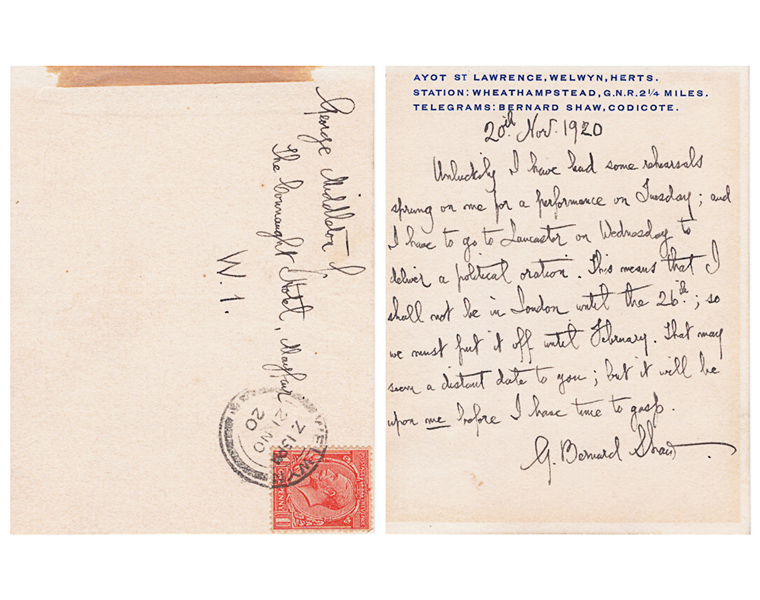 George Middleton
The Connaught Hotel, Mayfair
W. 1.
WELWYN
7.15PM
21 NO
20
ONE PENNY
AYOT ST LAWRENCE, WELWYN, HERTS.
STATION: WHEATHAMPSTEAD, G.N.R. 2¼ MILES.
TELEGRAMS: BERNARD SHAW, CODICOTE.
20th Nov. 1920
Unluckily I have had some rehearsals
sprung on me for a performance on Tuesday; and
I have to go to Lancaster on Wednesday to
deliver a political oration. This means that I
shall not be in London until the 26th; so
we must put it off until February. That may
seem a distant date to you; but it will be
upon me before I have time to gasp.
G. Bernard Shaw